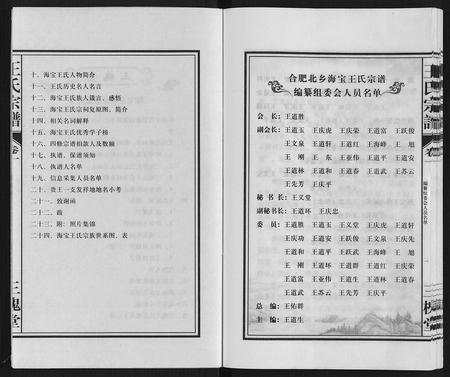 王氏宗谱
卷一
三槐堂
十、海宝王氏人物简介
十一、王氏历史名人名言
十二、海宝王氏族人箴言、感悟
十三、海宝王氏宗祠复原图、简介
十四、相关名词解释
十五、海宝王氏优秀学子榜
十六、四修宗谱捐款人及数额
十七、执谱、保谱须知
十八、执谱人名单
十九、信息采集人员名单
二十、贵王一支发祥地地名小考
二十一、致谢函
二十二、跋
二十三、附：照片集锦
二十四、海宝王氏宗族世系图、表
合肥北乡海宝王氏宗谱
编纂组委会人员名单
会 长：王道胜
副会长：王道玉 王庆虎 王庆荣 王道富 王跃俊
王文泉 王道轩 王道红 王海峰 王 旭
王 刚 王 东 王亚伟 王道平 王道安
王道林 王道和 王道春 王道武 王苏云
王先芳 王庆平
秘 书 长：王义堂
副秘书长：王道环 王庆忠
委 员：王道胜 王道玉 王义堂 王庆虎 王道轩
王庆功 王道安 王跃俊 王文泉 王庆先
王道和 王道平 王跃武 王海峰 王 旭
王 刚 王道环 王道群 王道红 王庆荣
王道富 王亚伟 王道生 王道林 王道春
王道武 王苏云 王先芳 王庆平
总 编：王佑群
主 编：王道生
王氏宗谱
卷一
编纂组委会人员名单
槐堂